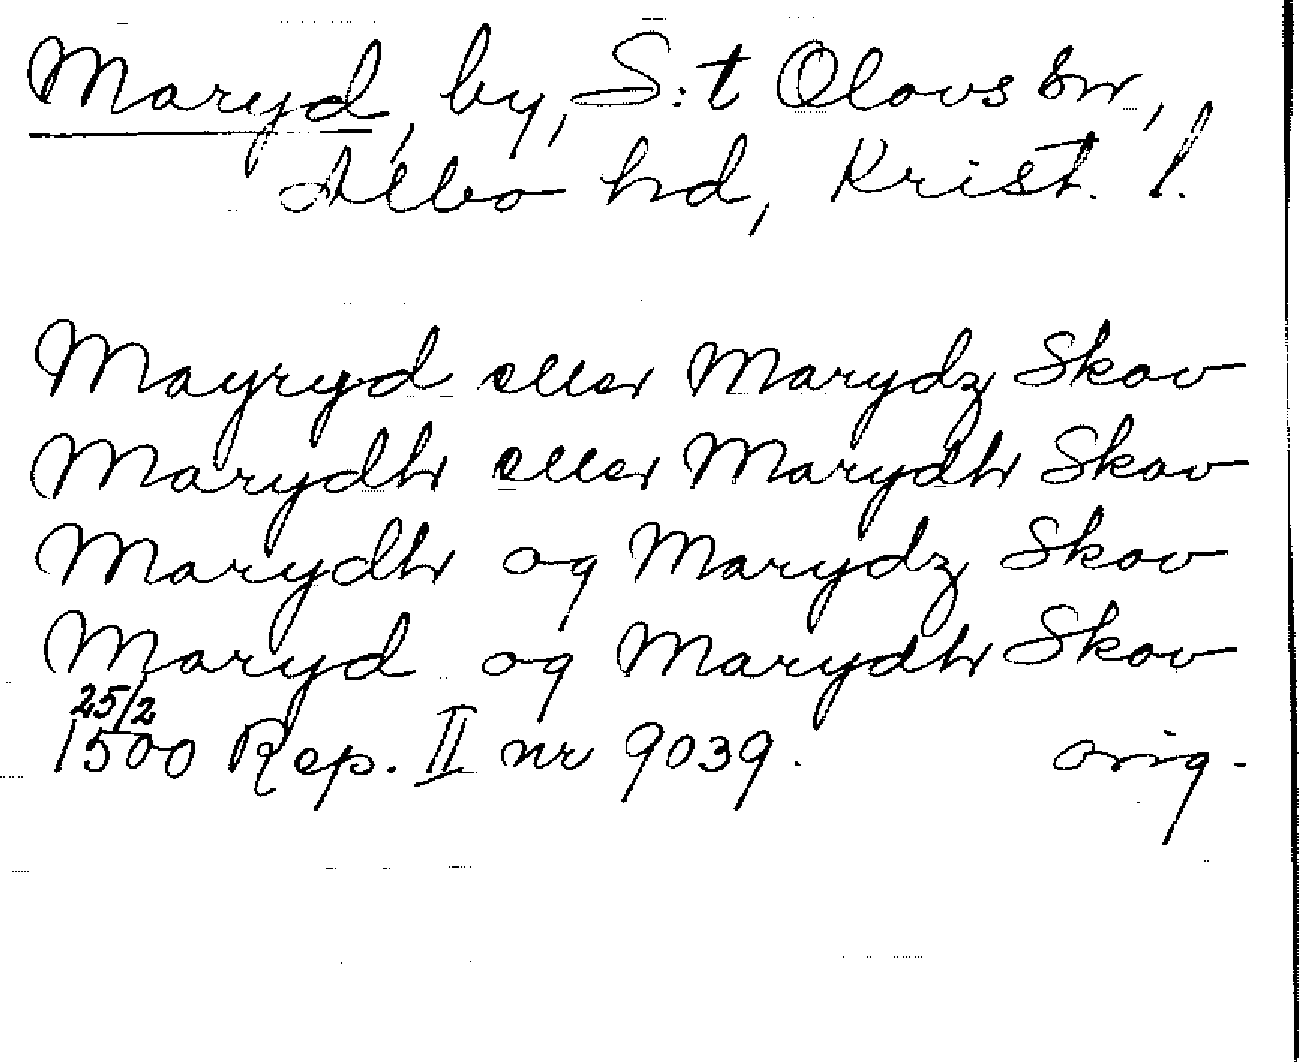 Maryd, by, S:t Olovs sn,
Albo hd, Krist. l.
Mayryd eller Marydz Skov
Marydh eller Marydh Skov
Marydh og Marydz Skov
Maryd og Marydh Skov
25/2
1500 Rep. II nr 9039. orig.